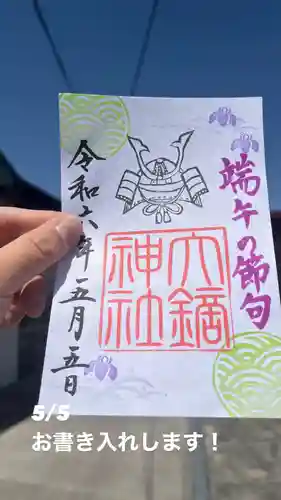 端午の節句
六鏑
神社
令和六年五月五日
5/5
お書き入れします！